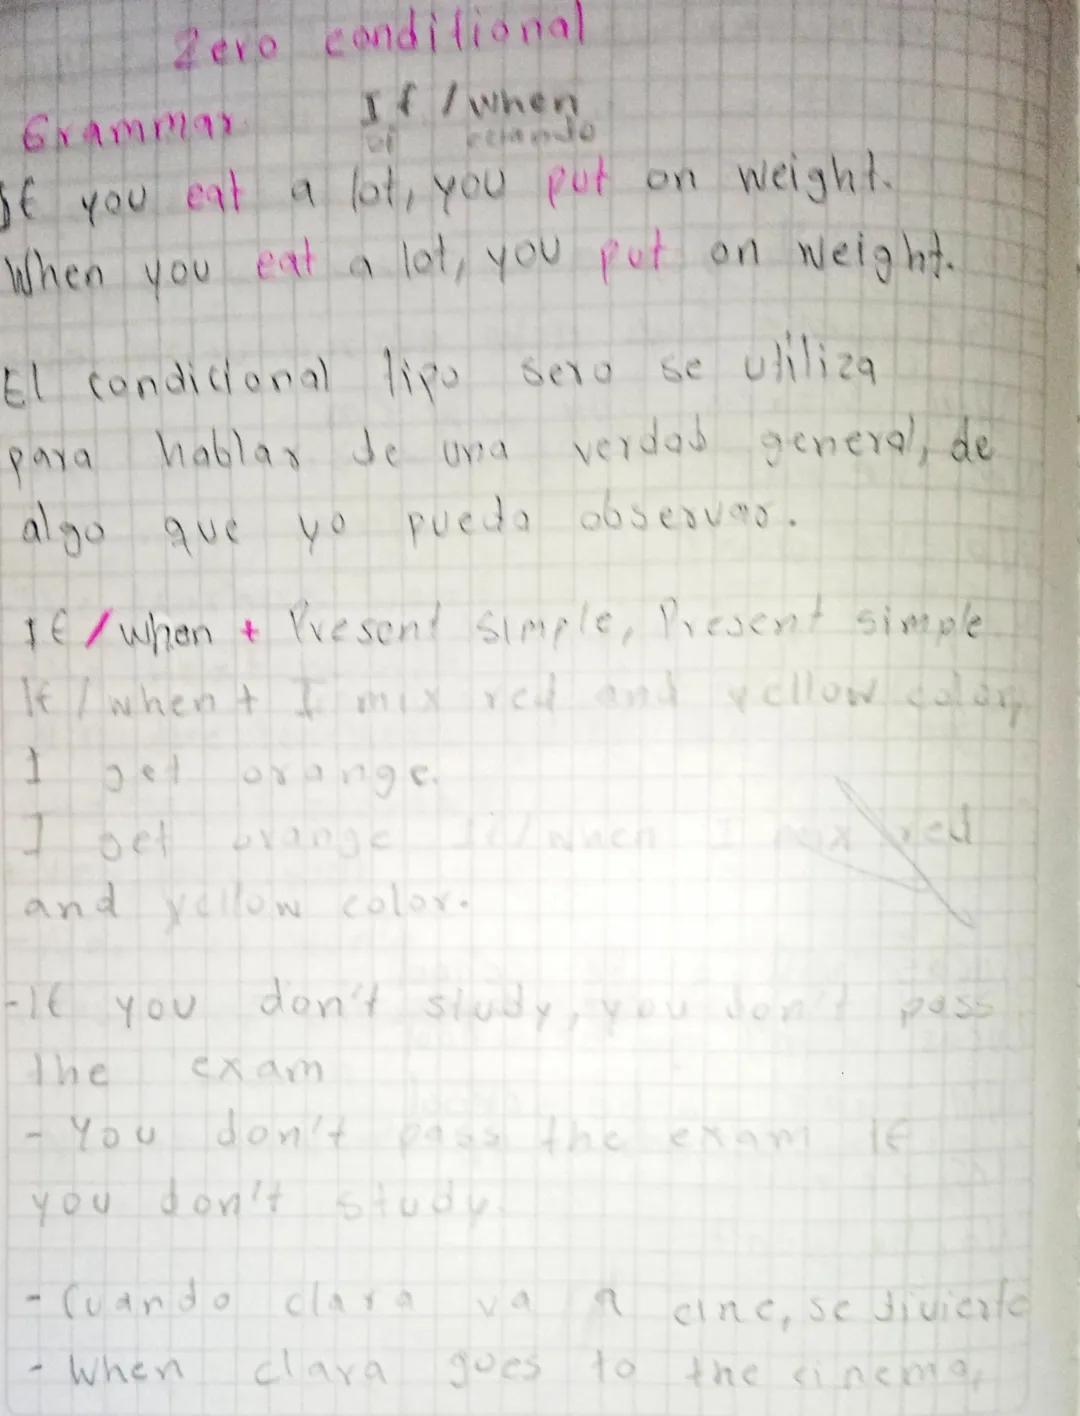 Zero conditional
Grammar If / when
si cuando
If you eat a lot, you put on weight.
When you eat a lot, you put on weight.
El condicional tipo sero se utiliza
para hablar de una verdad general, de
algo que yo pueda observar.
If / when + Present simple, Present simple
If / when + I mix red and yellow color,
I get orange.
I get orange if/when I mix red
and yellow color.
-If you don't study, you don't pass
the exam
- You don't pass the exam If
you don't study.
- Cuando clara va a cine, se divierte
- When clara goes to the cinema,